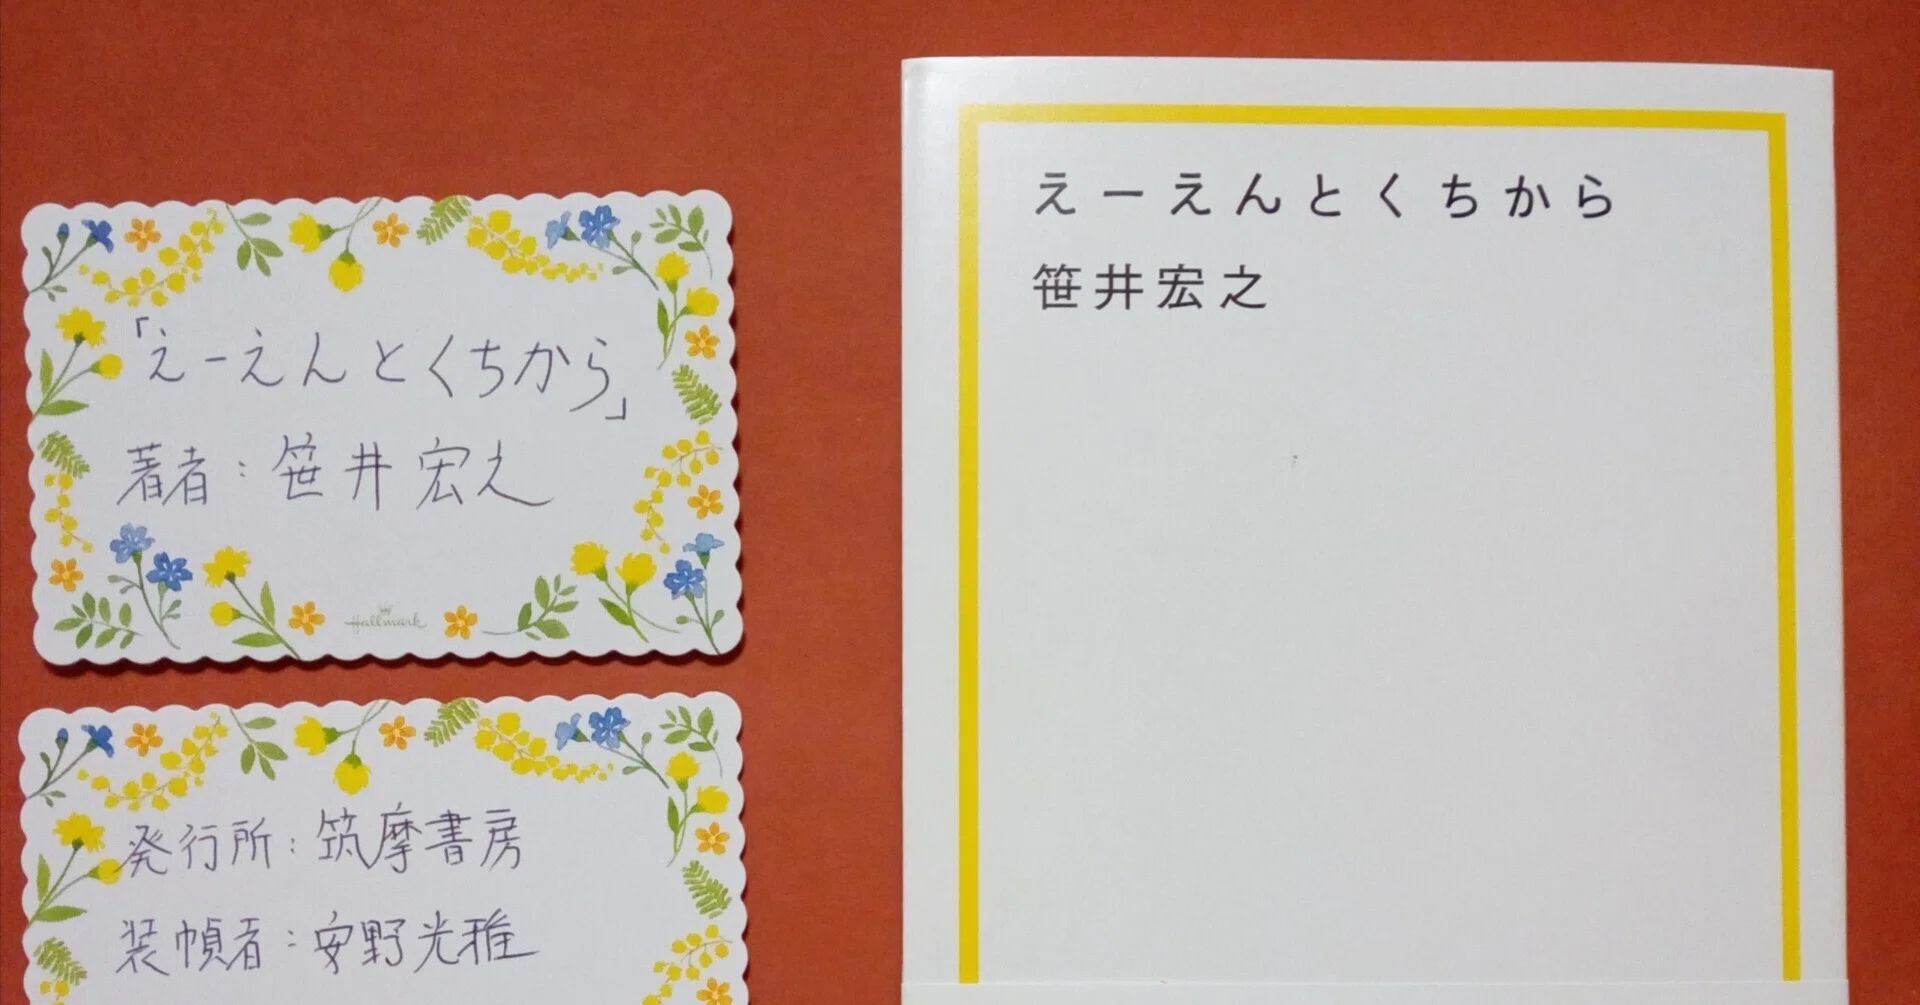 「えーえんとくちから」
著者：笹井宏之
Hallmark
発行所：筑摩書房
装幀者：安野光雅
えーえんとくちから
笹井宏之